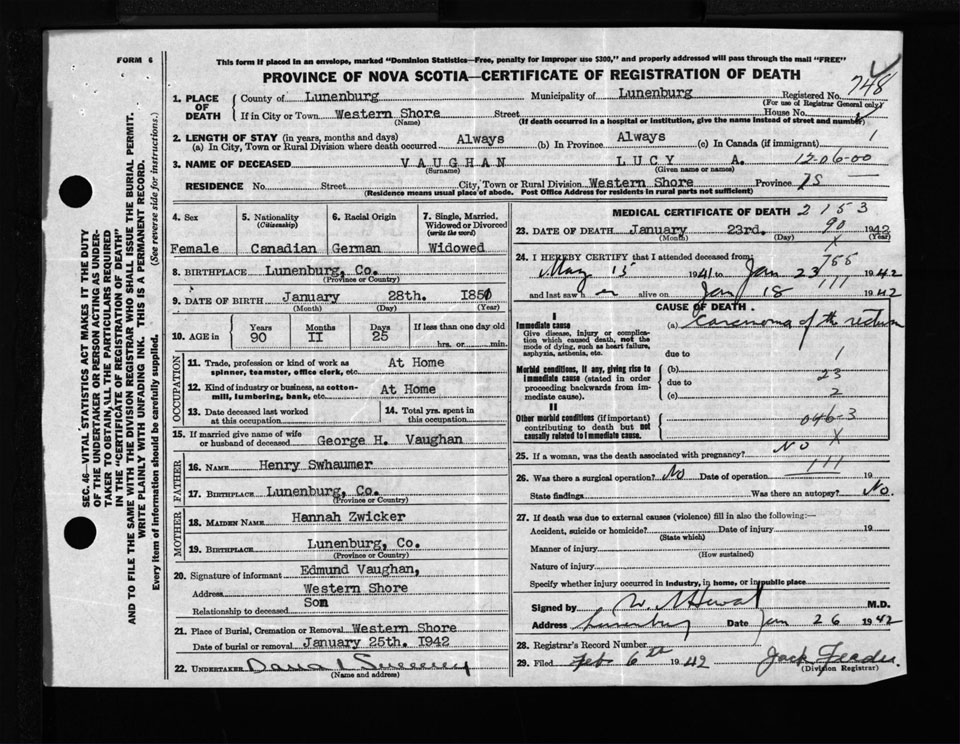 FORM 6
This form if placed in an envelope, marked "Dominion Statistics—Free, penalty for improper use $300," and properly addressed will pass through the mail "FREE"
PROVINCE OF NOVA SCOTIA—CERTIFICATE OF REGISTRATION OF DEATH
748
1. PLACE OF DEATH
County of Lunenburg Municipality of Lunenburg Registered No.
(For use of Registrar General only)
If in City or Town Western Shore Street House No.
(Name) (If death occurred in a hospital or institution, give the name instead of street and number)
2. LENGTH OF STAY (in years, months and days)
(a) In City, Town or Rural Division where death occurred Always (b) In Province Always (c) In Canada (if immigrant) 1
3. NAME OF DECEASED VAUGHAN LUCY A. 12-06-00
(Surname) (Given name or names)
RESIDENCE No. Street City, Town or Rural Division Western Shore Province
(Residence means usual place of abode. Post Office Address for residents in rural parts not sufficient)
4. Sex 5. Nationality (Citizenship) 6. Racial Origin 7. Single, Married, Widowed or Divorced (write the word)
Female Canadian German Widowed
8. BIRTHPLACE Lunenburg, Co.
(Province or Country)
9. DATE OF BIRTH January 28th. 1851
(Month) (Day) (Year)
10. AGE in Years Months Days If less than one day old
90 II 25 hrs. or min.
OCCUPATION
11. Trade, profession or kind of work as spinner, teamster, office clerk, etc. At Home
12. Kind of industry or business, as cotton-mill, lumbering, bank, etc. At Home
13. Date deceased last worked at this occupation
14. Total yrs. spent in this occupation
15. If married give name of wife or husband of deceased George H. Vaughan
FATHER
16. NAME Henry Swhaumer
17. BIRTHPLACE Lunenburg, Co.
(Province or Country)
MOTHER
18. MAIDEN NAME Hannah Zwicker
19. BIRTHPLACE Lunenburg, Co.
(Province or Country)
20. Signature of informant Edmund Vaughan,
Address Western Shore
Relationship to deceased Son
21. Place of Burial, Cremation or Removal Western Shore
Date of burial or removal January 25th. 1942
22. UNDERTAKER
(Name and address)
MEDICAL CERTIFICATE OF DEATH 2153
23. DATE OF DEATH January 23rd. 90 1942
(Month) (Day) (Year)
X
24. I HEREBY CERTIFY that I attended deceased from: 755
May 15 1941 to Jan 23 1942
111
and last saw h er alive on Jan 18 1942
CAUSE OF DEATH
I
Immediate cause (a) Carcinoma of the rectum
Give disease, injury or complication which caused death, not the mode of dying, such as heart failure, asphyxia, asthenia, etc.
due to 1
Morbid conditions, if any, giving rise to immediate cause (stated in order proceeding backwards from immediate cause).
(b) 23
due to
(c) 2
II
Other morbid conditions (if important) contributing to death but not causally related to immediate cause.
046-3
X
25. If a woman, was the death associated with pregnancy? No
111
26. Was there a surgical operation? No Date of operation 19
State findings Was there an autopsy? No.
27. If death was due to external causes (violence) fill in also the following:—
Accident, suicide or homicide? Date of injury 19
(State which)
Manner of injury
(How sustained)
Nature of injury
Specify whether injury occurred in industry, in home, or in public place
Signed by M.D.
Address Lunenburg Date Jan 26 1942
28. Registrar's Record Number
29. Filed Feb 6th 1942 Jack
(Division Registrar)
SEC. 46—VITAL STATISTICS ACT MAKES IT THE DUTY
OF THE UNDERTAKER OR PERSON ACTING AS UNDER-
TAKER TO OBTAIN ALL THE PARTICULARS REQUIRED
IN THE "CERTIFICATE OF REGISTRATION OF DEATH"
AND TO FILE THE SAME WITH THE DIVISION REGISTRAR WHO SHALL ISSUE THE BURIAL PERMIT.
WRITE PLAINLY WITH UNFADING INK. THIS IS A PERMANENT RECORD.
Every item of Information should be carefully supplied. (See reverse side for instructions.)